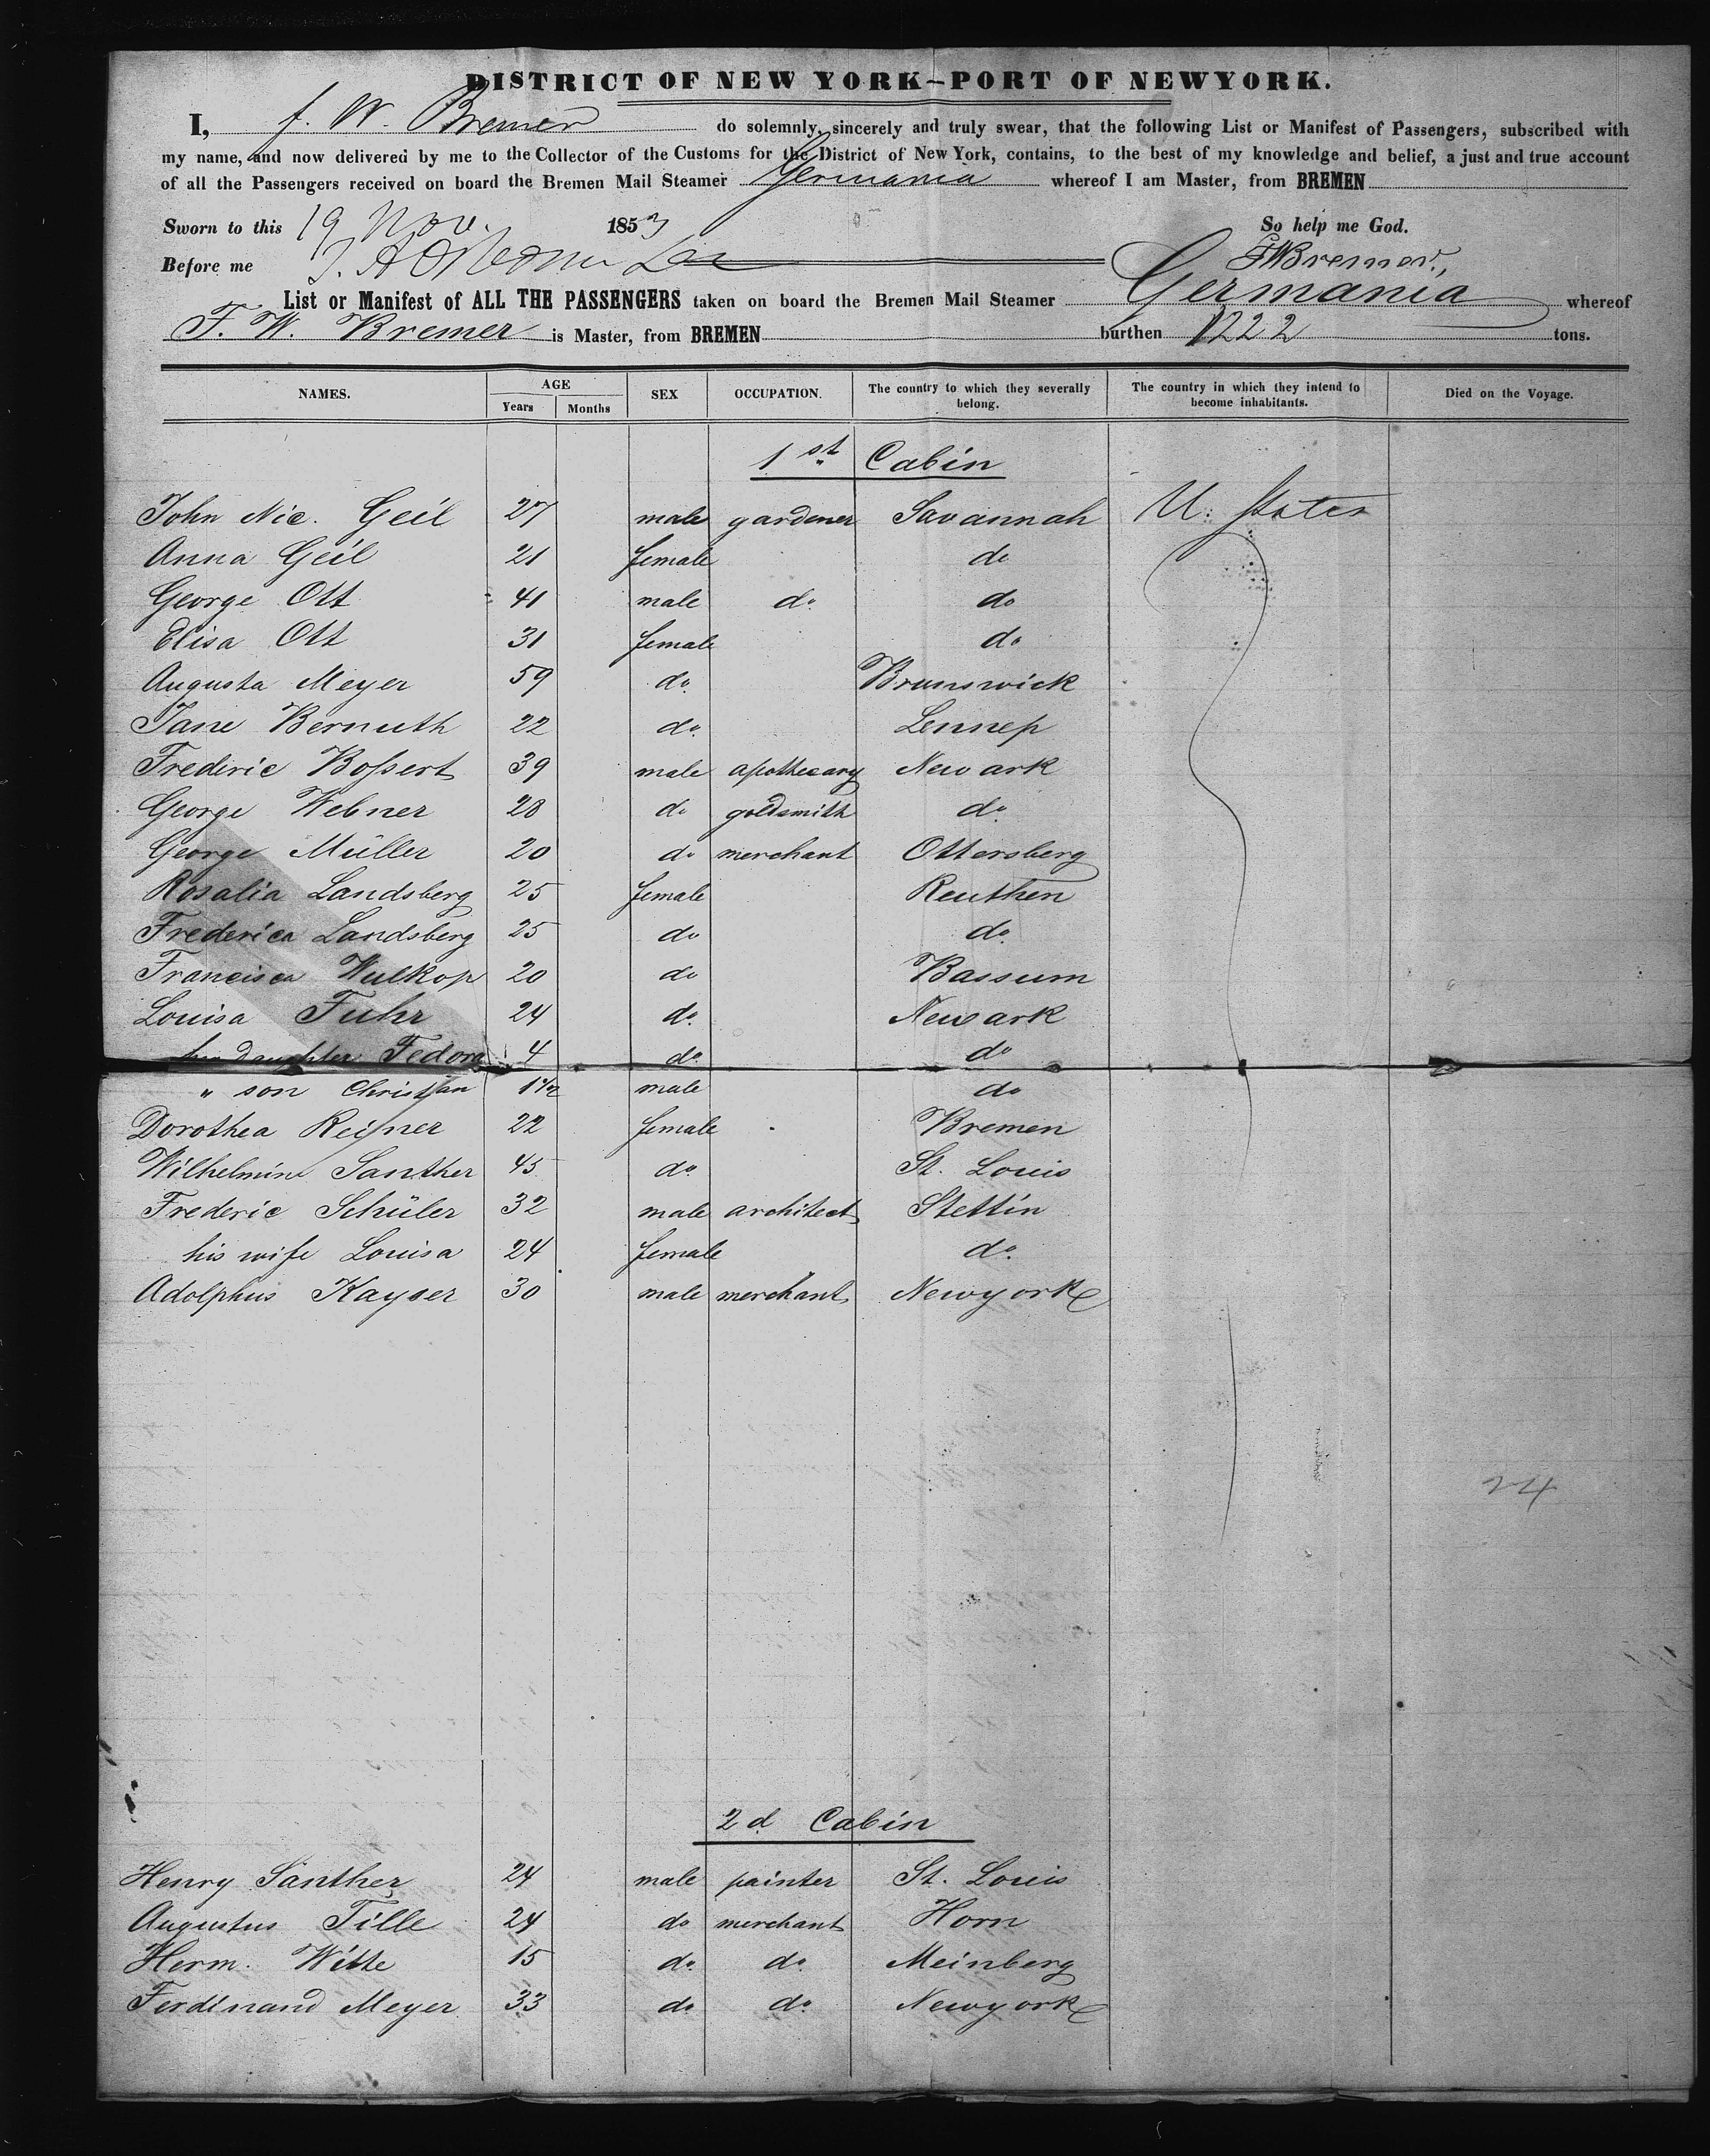 DISTRICT OF NEW YORK–PORT OF NEWYORK.
I, f. W. Bremer do solemnly, sincerely and truly swear, that the following List or Manifest of Passengers, subscribed with
my name, and now delivered by me to the Collector of the Customs for the District of New York, contains, to the best of my knowledge and belief, a just and true account
of all the Passengers received on board the Bremen Mail Steamer Germania whereof I am Master, from BREMEN
Sworn to this 19 Nov. 1853 So help me God.
Before me FWBremer,
List or Manifest of ALL THE PASSENGERS taken on board the Bremen Mail Steamer Germania whereof
F. W. Bremer is Master, from BREMEN burthen 1222 tons.
NAMES. AGE Years Months SEX OCCUPATION. The country to which they severally belong. The country in which they intend to become inhabitants. Died on the Voyage.
1st Cabin
John Nic. Geil 27 male gardener Savannah U. States
Anna Geil 21 female do
George Ott 41 male do do
Elisa Ott 31 female do
Augusta Meyer 59 do Brunswick
Jane Bernuth 22 do Lennep
Frederic Boſsert 39 male apothecary Newark
George Webner 28 do goldsmith do
George Müller 20 do merchant Ottersberg
Rosalia Landsberg 25 female Reuthen
Frederica Landsberg 25 do do
Francisca Wulkop 20 do Bassum
Louisa Fuhr 24 do Newark
her daughter Fedora 4 do do
" son Christian 1 1/2 male do
Dorothea 22 female Bremen
Wilhelmine Santher 45 do St. Louis
Frederic Schüler 32 male architect Stettin
his wife Louisa 24 female do
Adolphus Kayser 30 male merchant Newyork
24
2d Cabin
Henry Santher 24 male painter St. Louis
Augustus Tille 24 do merchant Horn
Herm. Witte 15 do do Meinberg
Ferdinand Meyer 33 do do Newyork